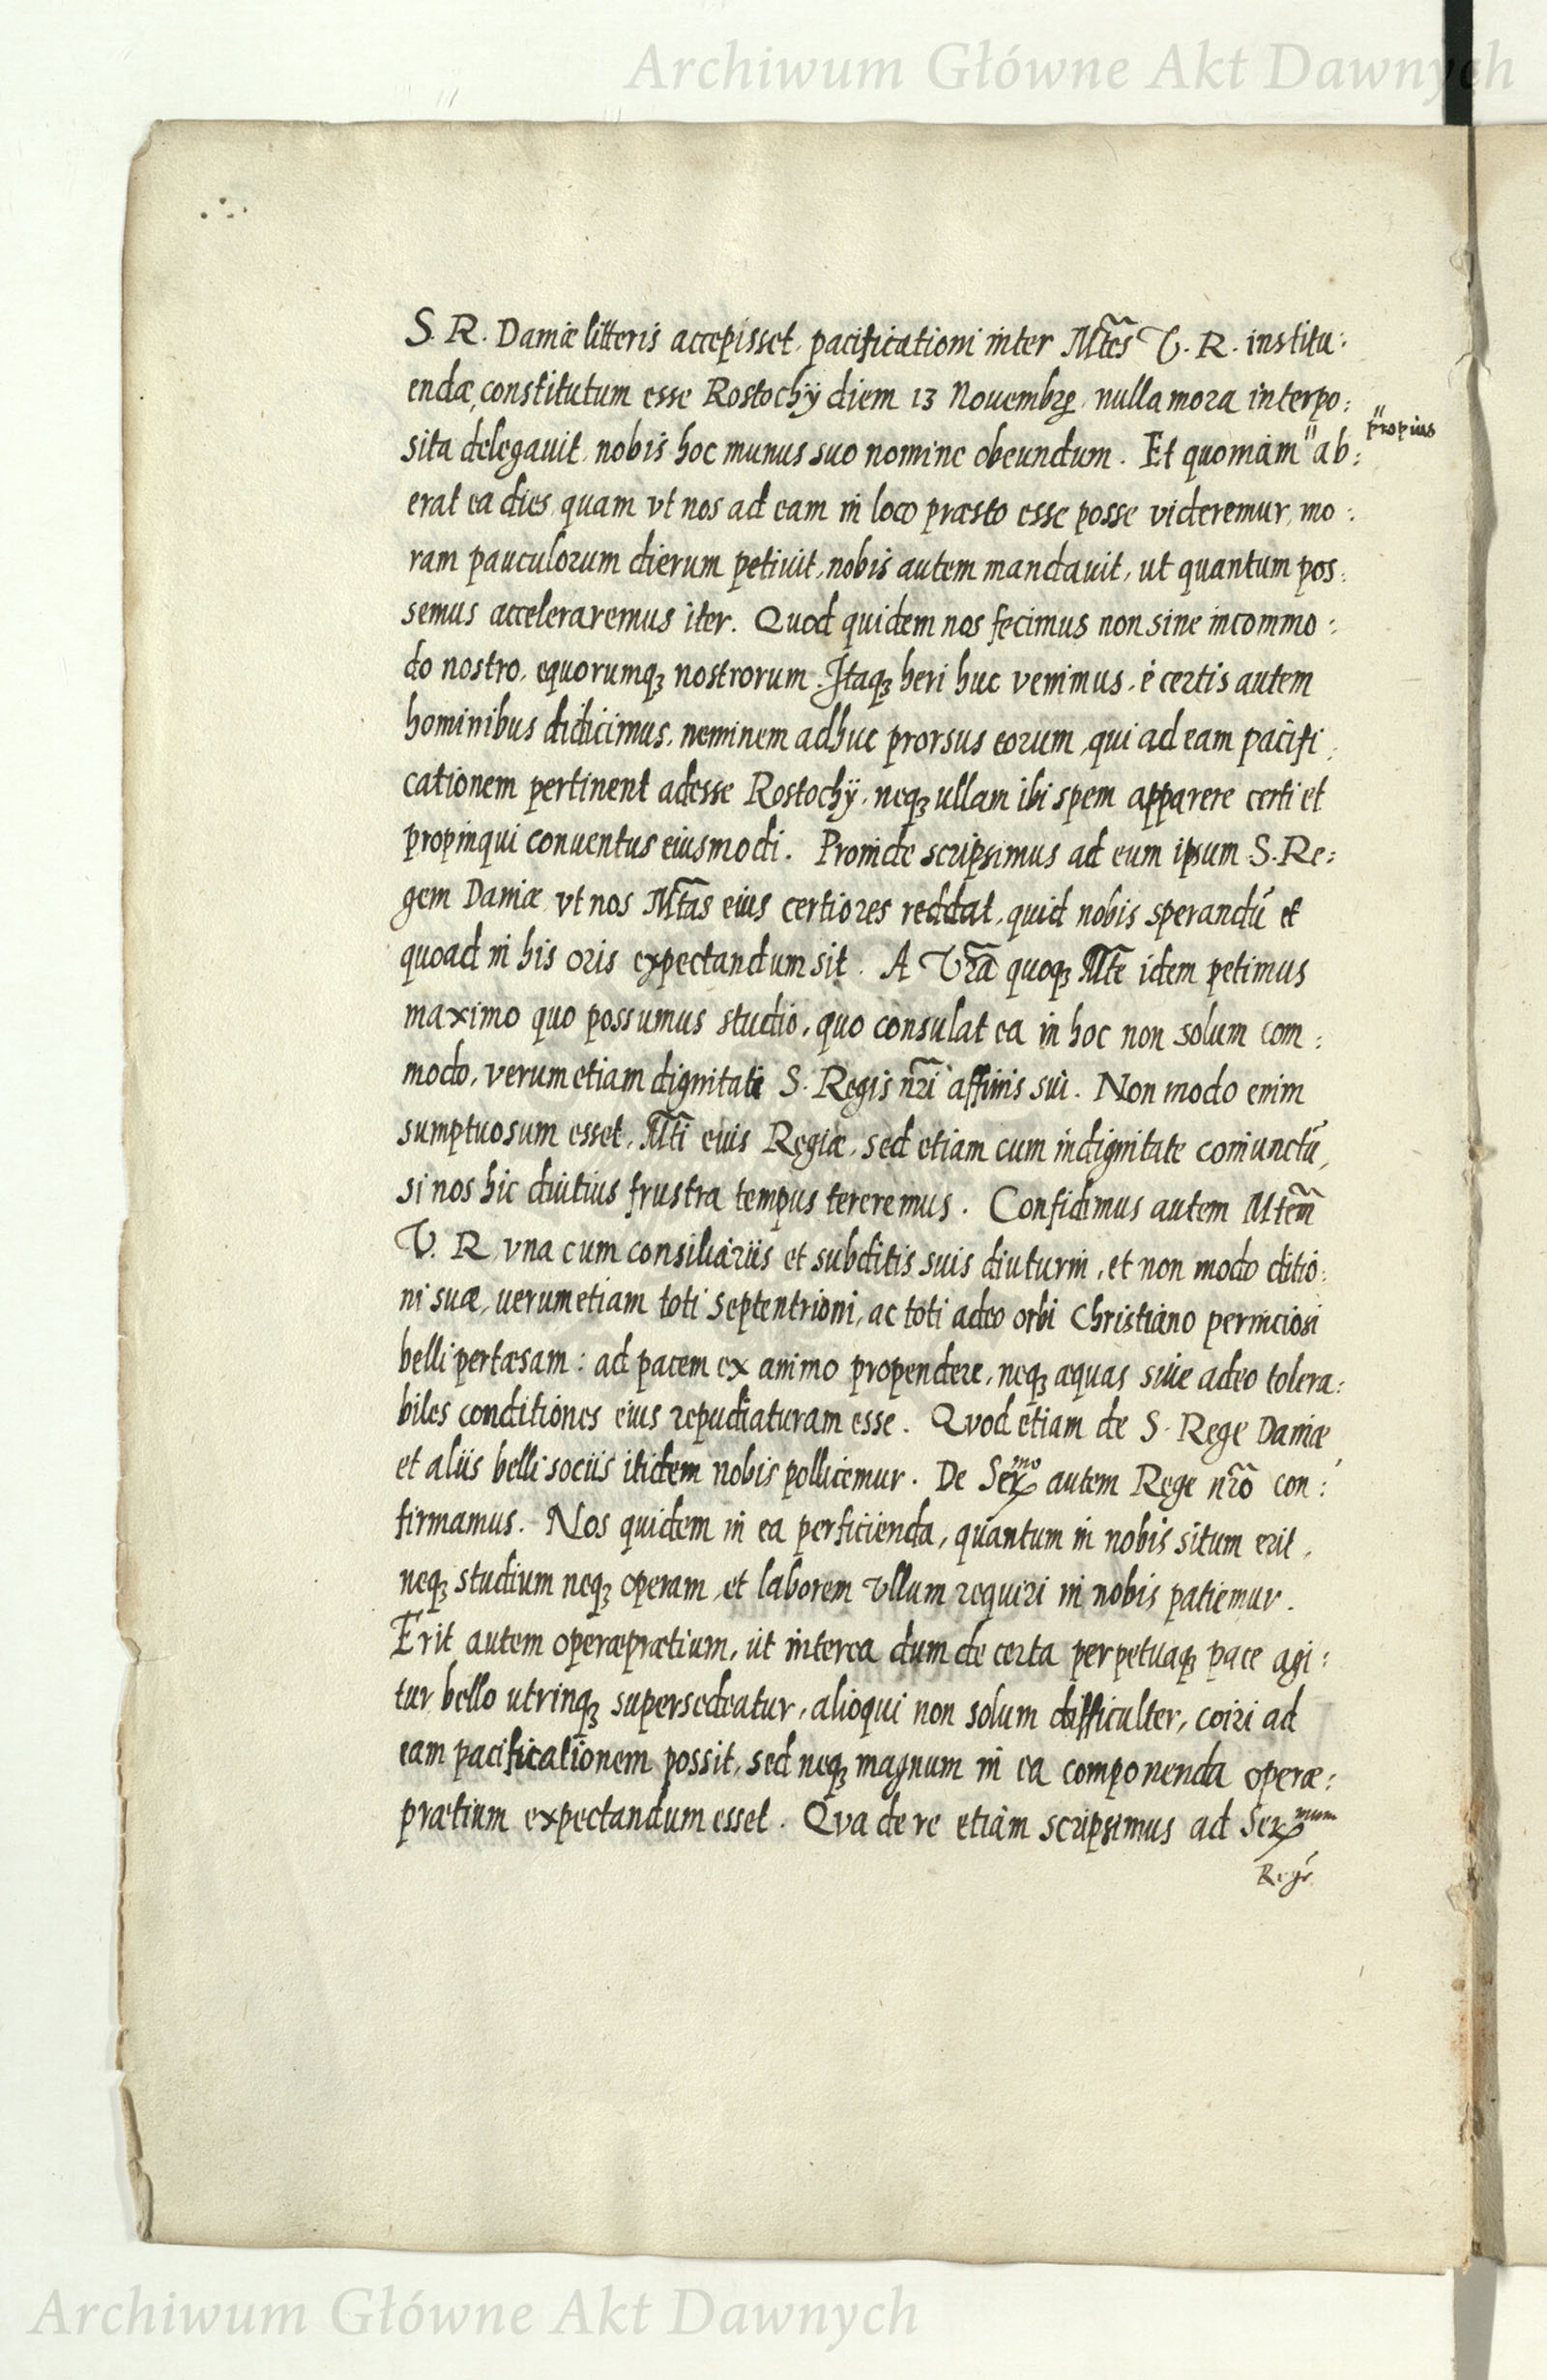 Archiwum Główne Akt Dawnych
S. R. Daniæ litteris accepisset, pacificationi inter Mtẽs V. R. institu:
endæ, constitutum esse Rostochÿ diem 13 Nouembrꝭ, nulla mora interpo:
sita delegauit, nobis hoc munus suo nomine obeundum. Et quoniam " ab:
" propius
erat ea dies, quam vt nos ad eam in loco præsto esse posse videremur, mo:
ram pauculorum dierum petiuit, nobis autem mandauit, ut quantum pos:
semus acceleraremus iter. Quod quidem nos fecimus non sine incommo:
do nostro, equorumqꝫ nostrorum. Itaqꝫ heri huc venimus, è certis autem
hominibus didicimus, neminem adhuc prorsus eorum, qui ad eam pacifi:
cationem pertinent adesse Rostochÿ, neqꝫ ullam ibi spem apparere certi et
propinqui conuentus eiusmodi. Proinde scripsimus ad eum ipsum S. Re:
gem Daniæ vt nos Mtãs eius certiores reddat, quid nobis sperandũ et
quoad in his oris expectandum sit. A Vrã quoqꝫ Mtẽ idem petimus
maximo quo possumus studio, quo consulat ea in hoc non solum com:
modo, verum etiam dignitati S. Regis nrĩ affinis sui. Non modo enim
sumptuosum esset, Mtĩ euis Regiæ, sed etiam cum indignitate coniunctũ,
si nos hic diutius frustra tempus tereremus. Confidimus autem Mtem̃
V. R. vna cum consiliariis et subditis suis diuturni, et non modo ditio:
ni suæ, uerum etiam toti septentrioni, ac toti adeo orbi Christiano perniciosi
belli pertæsam: ad pacem ex animo propendere, neqꝫ æquas siue adeo tolera:
biles conditiones eius repudiaturam esse. Quod etiam de S. Rege Daniæ
et aliis belli sociis itidem nobis pollicemur. De Serᵐᵒ autem Rege nrõ con:
firmamus. Nos quidem in ea perficienda, quantum in nobis situm erit,
neqꝫ studium neqꝫ operam, et laborem vllum requiri in nobis patiemur.
Erit autem operæprætium, ut interea dum de certa perpetuaqꝫ pace agi:
tur bello utrinqꝫ supersedeatur, alioqui non solum difficulter, coiri ad
eam pacificationem possit, sed neqꝫ magnum in ea componenda operæ:
prætium expectandum esset. Qua de re etiam scripsimus ad Serᵐᵘᵐ
Regẽ
Archiwum Główne Akt Dawnych